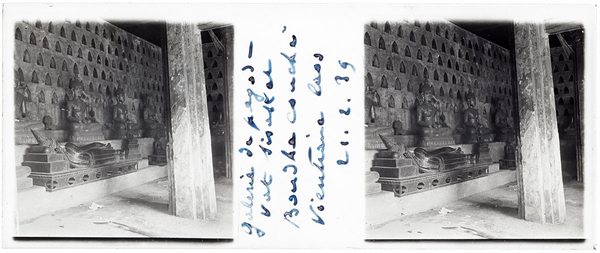 galerie de pagod-
vat Sisaket
Boudha couché
Vientiane Laos
21.2.39